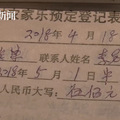 看看新闻
家乐预定登记表
2018年4月18
联系人姓名
2018年5月1日
人民币大写:伍佰元